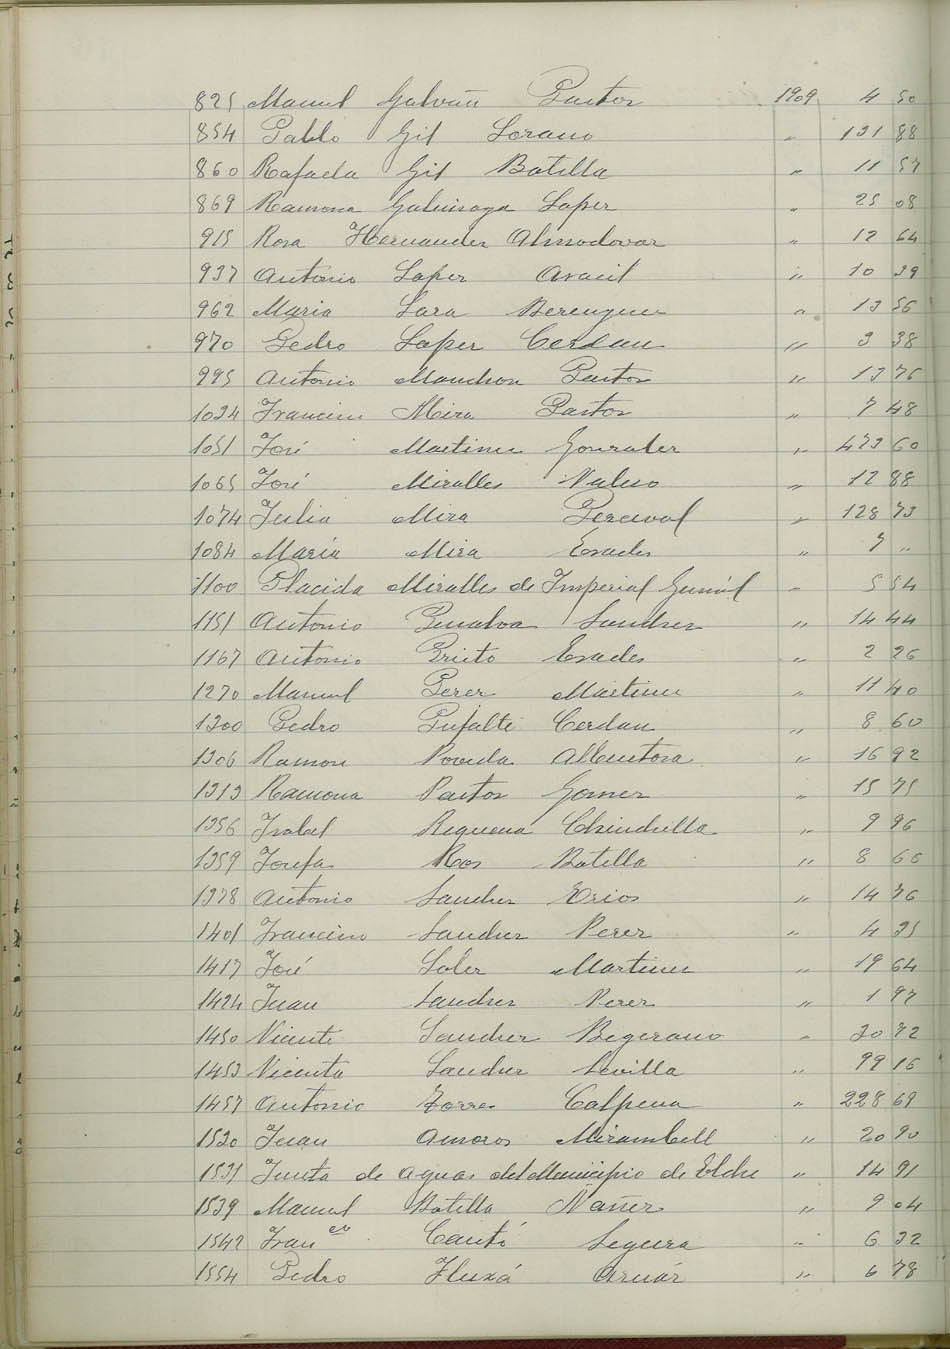 825 Manuel Galvañ Pastor 1909 4 50
854 Pablo Gil Lorano " 131 88
860 Rafaela Gil Botella " 11 57
869 Ramona Galinsoga Loper " 25 08
915 Rosa Hernander Almodovar " 12 64
937 Antonio Loper Aracil " 10 39
962 Maria Lara Berenguer " 13 56
970 Pedro Loper Cerdan " 3 38
995 Antonio Manchon Pastor " 13 76
1034 Francisco Mira Pastor " 7 48
1051 José Martiner Gonraler " 473 60
1065 José Miralles " 12 88
1074 Julia Mira Perceval " 128 73
1084 María Mira Esades " 7 "
1100 Placida Miralles de Imperial " 5 54
1151 Antonio Penalva Sancher " 14 44
1167 Antonio Prieto Esades " 2 26
1270 Manuel Perer Martiner " 11 40
1300 Pedro Pujalte Cerdan " 8 60
1306 Ramon Poveda Albentosa " 16 92
1313 Ramona Pastor Gomer " 15 75
1356 Isabel Requena Chinchilla " 9 96
1359 Josefa Ros Botella " 8 66
1378 Antonio Sancher " 14 76
1401 Francisco Sancher Perer " 4 35
1417 José Soler Martiner " 19 64
1424 Juan Sancher Perer " 1 97
1450 Vicente Sancher Begerano " 30 72
1453 Vicenta Sancher Sevilla " 99 16
1457 Antonio Torres Calpena " 228 69
1530 Juan Amoros Mirambell " 20 90
1531 Junta de Aguas del Municipio de Elche " 14 91
1539 Manuel Botella Nañer " 9 04
1542 Fran co Cantó Segura " 6 32
1554 Pedro Fluxá Arnár " 6 78